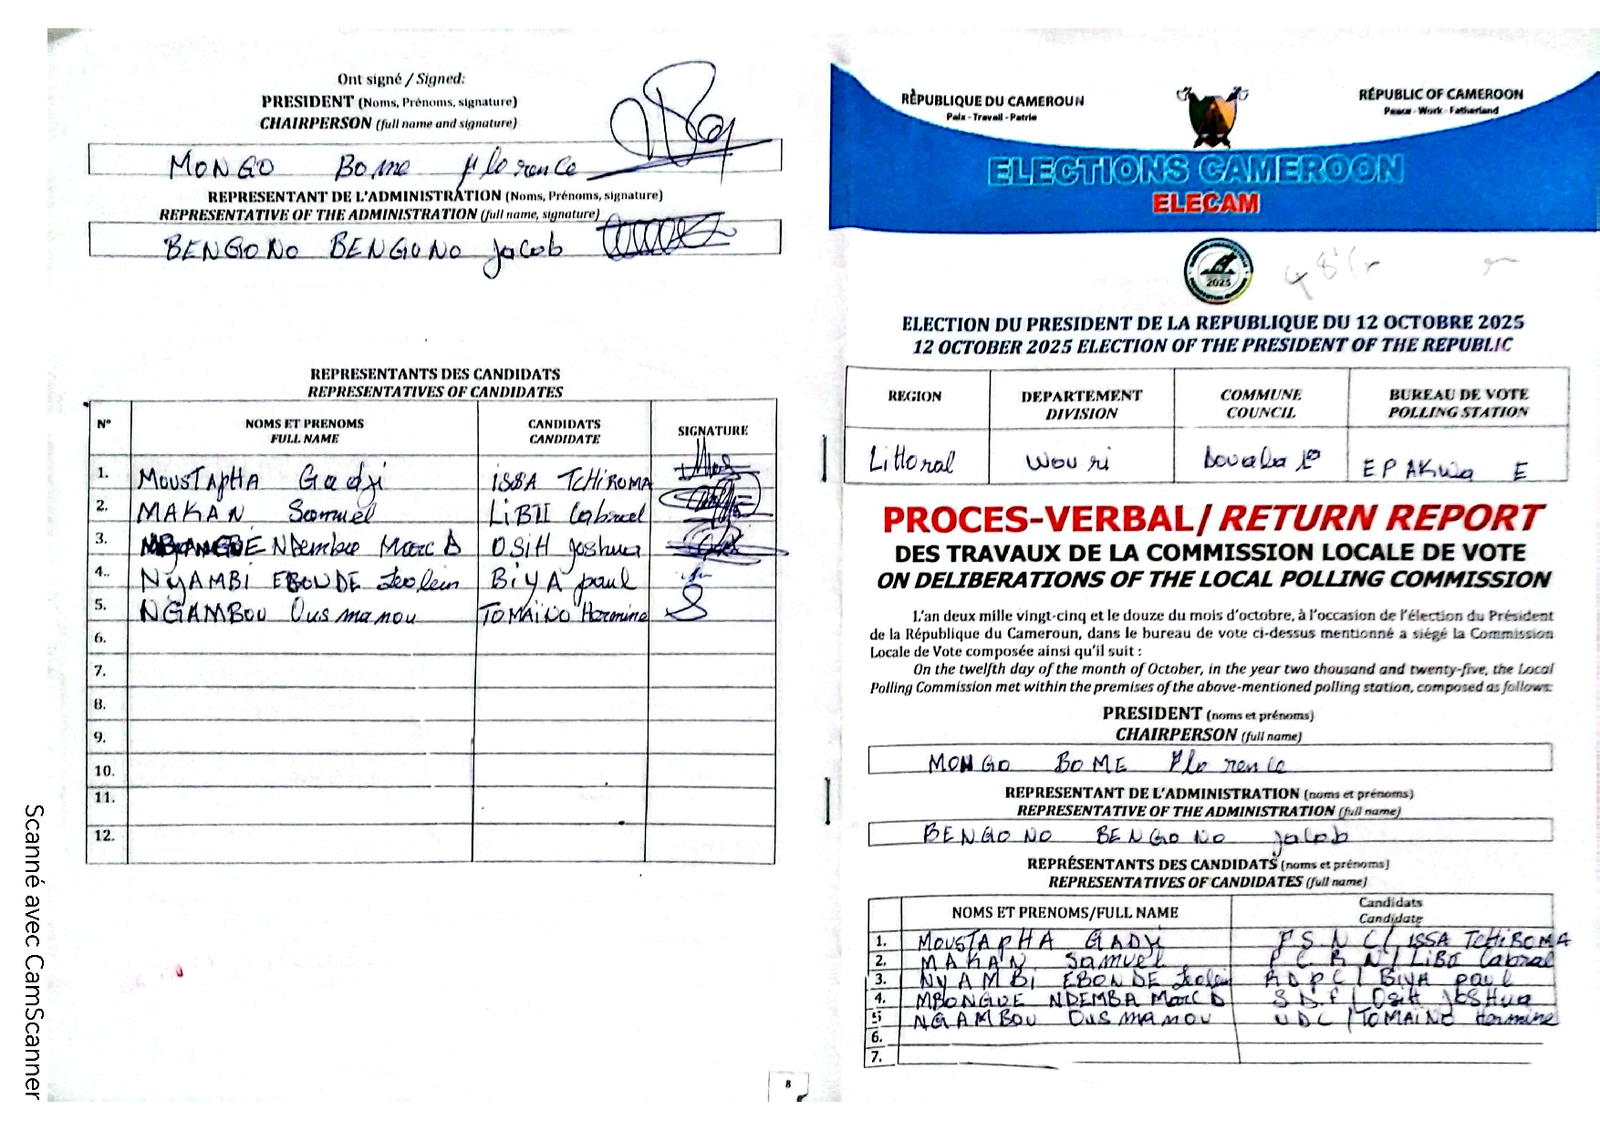 Ont signé / Signed:
PRESIDENT (Noms, Prénoms, signature)
CHAIRPERSON (full name and signature)
MONGO Bome Florence
REPRESENTANT DE L'ADMINISTRATION (Noms, Prénoms, signature)
REPRESENTATIVE OF THE ADMINISTRATION (full name, signature)
BENGONO BENGONO Jacob
REPRESENTANTS DES CANDIDATS
REPRESENTATIVES OF CANDIDATES
N° NOMS ET PRENOMS CANDIDATS SIGNATURE
FULL NAME CANDIDATE
1. MOUSTAPHA Gadji ISSA TCHIROMA
2. MAKAN Samuel LIBII Cabral
3. MBONGUE Ndemba Marc D OSIH Joshua
4. NYAMBI EBONDE BIYA paul
5. NGAMBOU Ousmanou TOMAÏNO Hermine
6.
7.
8.
9.
10.
11.
12.
8
Scanné avec CamScanner
RÉPUBLIQUE DU CAMEROUN RÉPUBLIC OF CAMEROON
Paix - Travail - Patrie Peace - Work - Fatherland
ELECTIONS CAMEROON
ELECAM
2025
ELECTION DU PRESIDENT DE LA REPUBLIQUE DU 12 OCTOBRE 2025
12 OCTOBER 2025 ELECTION OF THE PRESIDENT OF THE REPUBLIC
REGION DEPARTEMENT COMMUNE BUREAU DE VOTE
DIVISION COUNCIL POLLING STATION
Littoral Wouri Douala 1er EP AKwa E
PROCES-VERBAL/ RETURN REPORT
DES TRAVAUX DE LA COMMISSION LOCALE DE VOTE
ON DELIBERATIONS OF THE LOCAL POLLING COMMISSION
L'an deux mille vingt-cinq et le douze du mois d'octobre, à l'occasion de l'élection du Président
de la République du Cameroun, dans le bureau de vote ci-dessus mentionné a siégé la Commission
Locale de Vote composée ainsi qu'il suit :
On the twelfth day of the month of October, in the year two thousand and twenty-five, the Local
Polling Commission met within the premises of the above-mentioned polling station, composed as follows:
PRESIDENT (noms et prénoms)
CHAIRPERSON (full name)
MONGO BOME Florence
REPRESENTANT DE L'ADMINISTRATION (noms et prénoms)
REPRESENTATIVE OF THE ADMINISTRATION (full name)
BENGONO BENGONO Jacob
REPRÉSENTANTS DES CANDIDATS (noms et prénoms)
REPRESENTATIVES OF CANDIDATES (full name)
NOMS ET PRENOMS/FULL NAME Candidats
Candidate
1. MOUSTAPHA GADJI F S N C / ISSA TCHIROMA
2. MAKAN Samuel P C R N / LIBII Cabral
3. NYAMBI EBONDE R D P C / BIYA paul
4. MBONGUE NDEMBA Marc D S D F / Osih JOSHUA
5. NGAMBOU Ousmanou UDC / TOMAÏNO Hermine
6.
7.